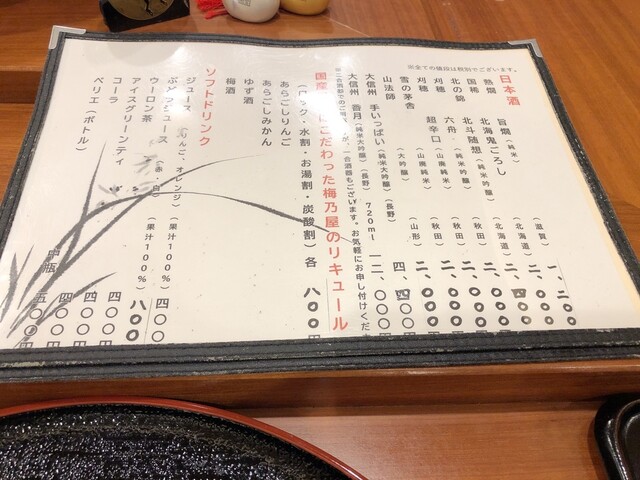 ※全ての値段は税別でございます。
日本酒
熱燗 旨燗(純米)(滋賀)一、二〇〇
国稀 北海鬼ごろし(北海道)二、四〇〇
北の錦 北斗随想(純米吟醸)(北海道)二、〇〇〇
刈穂 六舟(純米吟醸)(秋田)二、〇〇〇
刈穂 超辛口(山廃純米)(秋田)二、〇〇〇
雪の茅舎(山廃純米)(秋田)二、〇〇〇
山法師(大吟醸)(山形)四、四〇〇
大信州 手いっぱい(純米大吟醸)(長野)720ml 一二、〇〇〇
大信州 香月(純米大吟醸)(長野)
一合酒器もございます。お気軽にお申し付けくだ
国産 にこだわった梅乃屋のリキュール
(ロック・水割・お湯割・炭酸割)各 八〇〇
あらごしりんご
あらごしみかん
ゆず酒
梅酒
ソフトドリンク
ジュース(りんご、オレンジ)(果汁100%)四〇〇
ぶどうジュース(赤・白)(果汁100%)八〇〇
ウーロン茶 四〇〇
アイスグリーンティ 四〇〇
コーラ 中瓶 四〇〇
ペリエ(ボトル)五〇〇